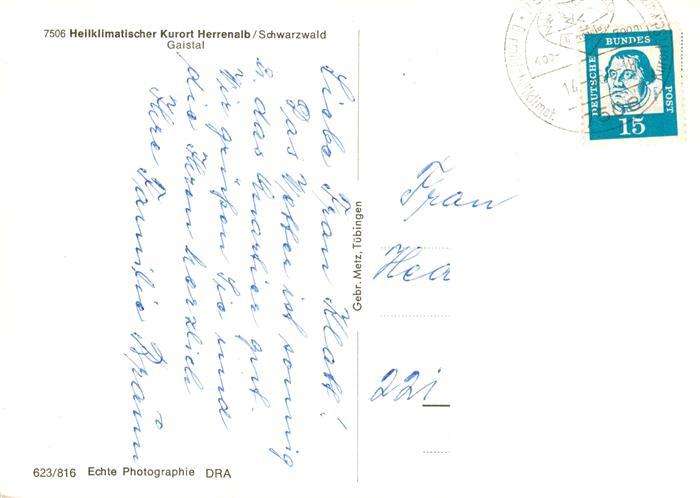 7506 Heilklimatischer Kurort Herrenalb/Schwarzwald
Gaistal
Liebe Frau Klatt!
Das Wetter ist sonnig
& das Quartier gut.
Wir grüßen Sie und
die Ihren herzlich
Ihre Familie Braun
623/816 Echte Photographie DRA
Gebr. Metz, Tübingen
DEUTSCHE BUNDES POST
15
Frau
Hea
221